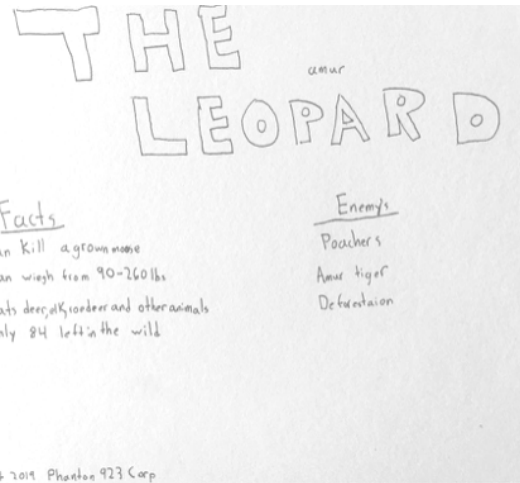 THE
amur
LEOPARD
Facts
an kill a grown moose
an wiegh from 90-260 lbs
ats deer, elk, roedeer and other animals
nly 84 left in the wild
Enemy's
Poachers
Amur tiger
Deforestaion
2019 Phanton 923 Corp